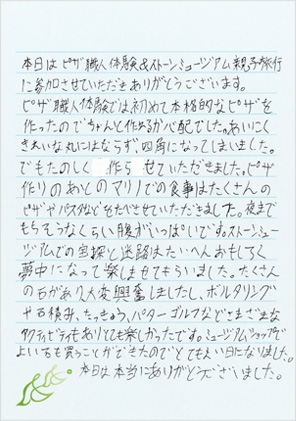 本日はピザ職人体験&ストーンミュージアム親子旅行
に参加させていただきありがとうございます。
ピザ職人体験では初めて本格的なピザを
作ったのでちゃんと作れるか心配でした。あいにく
きれいな丸にはならず四角になってしまいました。
でもたのしく 作ら せていただきました。ピザ
作りのあとのマリノでの食事はたくさんの
ピザやパスタなどをたべさせていただきました。夜まで
もちそうなくらい腹がいっぱいです。ストーンミュー
ジアムでの宝探と迷路はたいへんおもしろく
夢中になって楽しませてもらいました。たくさん
の石があり大変興奮しましたし、ボルダリング
や石積み、たっきゅう、パターゴルフなどさまざまな
アクティビティもありとても楽しかったです。ミュージアムショップで
よい石も買うことができたのでとてもよい日になりました。
本日は本当にありがとうございました。